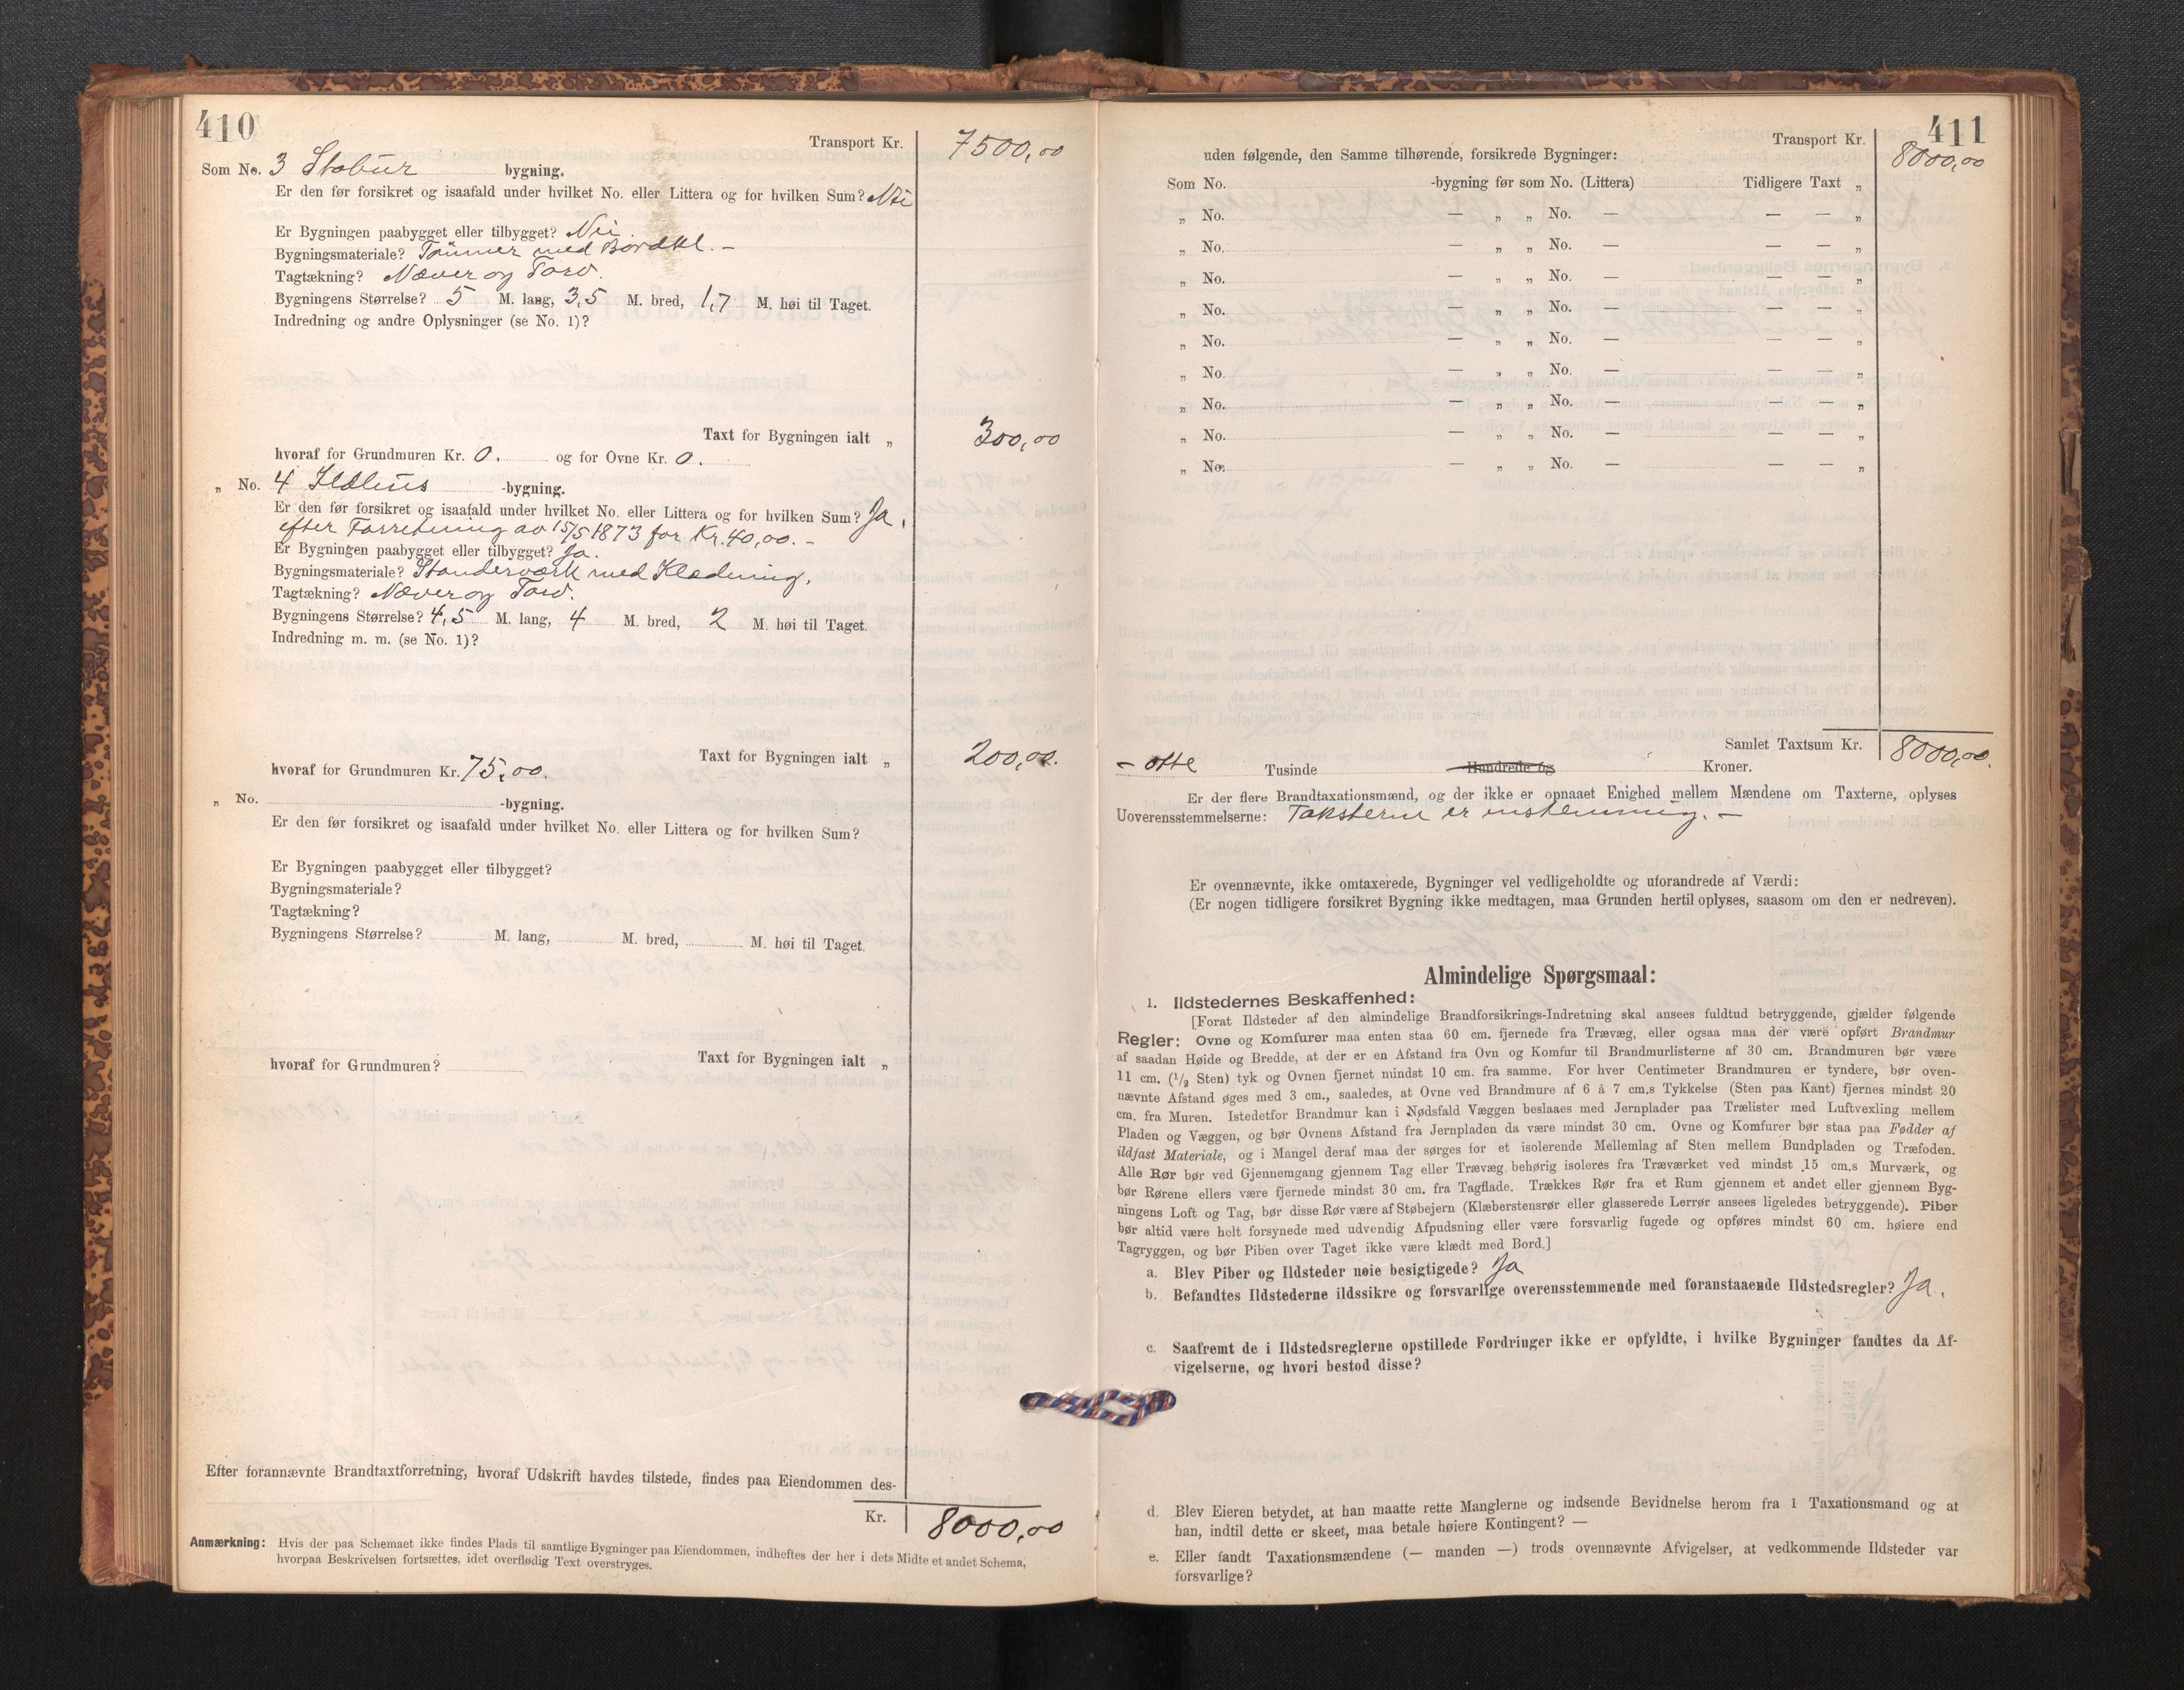 410
Transport Kr. 7500,00
Som No. 3 Stabur bygning.
Er den før forsikret og isaafald under hvilket No. eller Littera og for hvilken Sum? Nei
Er Bygningen paabygget eller tilbygget? Nei.
Bygningsmateriale? Tømmer med Bordkl. -
Tagtækning? Næver og Torv.
Bygningens Størrelse? 5 M. lang, 3,5 M. bred, 1,7 M. høi til Taget.
Indredning og andre Oplysninger (se No. 1)?
Taxt for Bygningen ialt „ 300,00
hvoraf for Grundmuren Kr. 0. og for Ovne Kr. 0.
„ No. 4 Ildhus -bygning.
Er den før forsikret og isaafald under hvilket No. eller Littera og for hvilken Sum? Ja,
efter Forretning av 15/5 1873 for Kr. 40,00. -
Er Bygningen paabygget eller tilbygget? Ja.
Bygningsmateriale? Standerværk med Klædning,
Tagtækning? Næver og Torv.
Bygningens Størrelse? 4,5 M. lang, 4 M. bred, 2 M. høi til Taget.
Indredning m. m. (se No. 1)?
Taxt for Bygningen ialt „ 200,00.
hvoraf for Grundmuren Kr. 75,00.
„ No. -bygning.
Er den før forsikret og isaafald under hvilket No. eller Littera og for hvilken Sum?
Er Bygningen paabygget eller tilbygget?
Bygningsmateriale?
Tagtækning?
Bygningens Størrelse? M. lang, M. bred, M. høi til Taget.
Taxt for Bygningen ialt „
hvoraf for Grundmuren?
Efter forannævnte Brandtaxtforretning, hvoraf Udskrift havdes tilstede, findes paa Eiendommen des-
Kr. 8000,00
Anmærkning: Hvis der paa Schemaet ikke findes Plads til samtlige Bygninger paa Eiendommen, indheftes der her i dets Midte et andet Schema,
hvorpaa Beskrivelsen fortsættes, idet overflødig Text overstryges.
411
Transport Kr. 8000,00
uden følgende, den Samme tilhørende, forsikrede Bygninger:
Som No. -bygning før som No. (Littera) Tidligere Taxt „
„ No. — „ „ No. — — — „
„ No. — „ „ No. — — — „
„ No. — „ „ No. — — — „
„ No. — „ „ No. — — — „
„ No. — „ „ No. — — — „
„ No. — „ „ No. — — — „
„ No. — „ „ No. — — — „
„ No. — „ „ No. — — — „
„ No. — „ „ No. — — — „
Samlet Taxtsum Kr. 8000,00.
- otte Tusinde Hundrede og Kroner.
Er der flere Brandtaxationsmænd, og der ikke er opnaaet Enighed mellem Mændene om Taxterne, oplyses
Uoverensstemmelserne: Taksterne er enstemmig. -
Er ovennævnte, ikke omtaxerede, Bygninger vel vedligeholdte og uforandrede af Værdi:
(Er nogen tidligere forsikret Bygning ikke medtagen, maa Grunden hertil oplyses, saasom om den er nedreven).
Almindelige Spørgsmaal:
1. Ildstedernes Beskaffenhed:
[Forat Ildsteder af den almindelige Brandforsikrings-Indretning skal ansees fuldtud betryggende, gjælder følgende
Regler: Ovne og Komfurer maa enten staa 60 cm. fjernede fra Trævæg, eller ogsaa maa der være opført Brandmur
af saadan Høide og Bredde, at der er en Afstand fra Ovn og Komfur til Brandmurlisterne af 30 cm. Brandmuren bør være
11 cm. (1/2 Sten) tyk og Ovnen fjernet mindst 10 cm. fra samme. For hver Centimeter Brandmuren er tyndere, bør oven-
nævnte Afstand øges med 3 cm., saaledes, at Ovne ved Brandmure af 6 à 7 cm.s Tykkelse (Sten paa Kant) fjernes mindst 20
cm. fra Muren. Istedetfor Brandmur kan i Nødsfald Væggen beslaaes med Jernplader paa Trælister med Luftvexling mellem
Pladen og Væggen, og bør Ovnens Afstand fra Jernpladen da være mindst 30 cm. Ovne og Komfurer bør staa paa Fødder af
ildfast Materiale, og i Mangel deraf maa der sørges for et isolerende Mellemlag af Sten mellem Bundpladen og Træfoden.
Alle Rør bør ved Gjennemgang gjennem Tag eller Trævæg behørig isoleres fra Træværket ved mindst 15 cm.s Murværk, og
bør Rørene ellers være fjernede mindst 30 cm. fra Tagflade. Trækkes Rør fra et Rum gjennem et andet eller gjennem Byg-
ningens Loft og Tag, bør disse Rør være af Støbejern (Klæberstensrør eller glasserede Lerrør ansees ligeledes betryggende). Piber
bør altid være helt forsynede med udvendig Afpudsning eller være forsvarlig fugede og opføres mindst 60 cm. høiere end
Tagryggen, og bør Piben over Taget ikke være klædt med Bord.]
a. Blev Piber og Ildsteder nøie besigtigede? Ja
b. Befandtes Ildstederne ildssikre og forsvarlige overensstemmende med foranstaaende Ildstedsregler? Ja.
c. Saafremt de i Ildstedsreglerne opstillede Fordringer ikke er opfyldte, i hvilke Bygninger fandtes da Af-
vigelserne, og hvori bestod disse?
d. Blev Eieren betydet, at han maatte rette Manglerne og indsende Bevidnelse herom fra 1 Taxationsmand og at
han, indtil dette er skeet, maa betale høiere Kontingent? —
e. Eller fandt Taxationsmændene (— manden —) trods ovennævnte Afvigelser, at vedkommende Ildsteder var
forsvarlige?